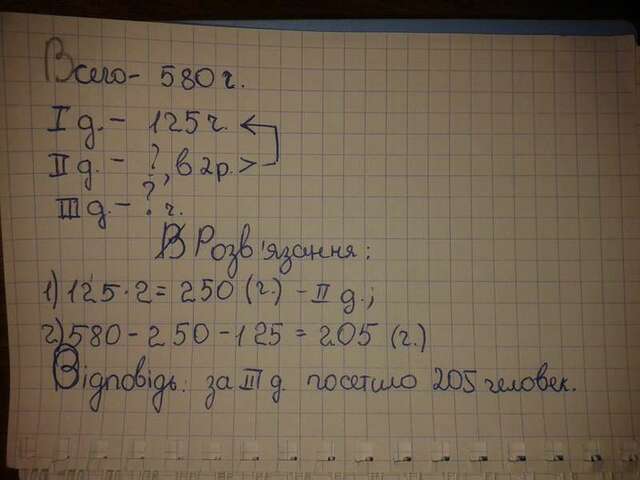 Всего - 580 ч.
I д. - 125 ч.
II д. - ?, в 2 р. >
III д. - ? ч.
Розв'язання:
1) 125 · 2 = 250 (ч.) - II д.;
2) 580 - 250 - 125 = 205 (ч.)
Відповідь: за III д. посетило 205 человек.